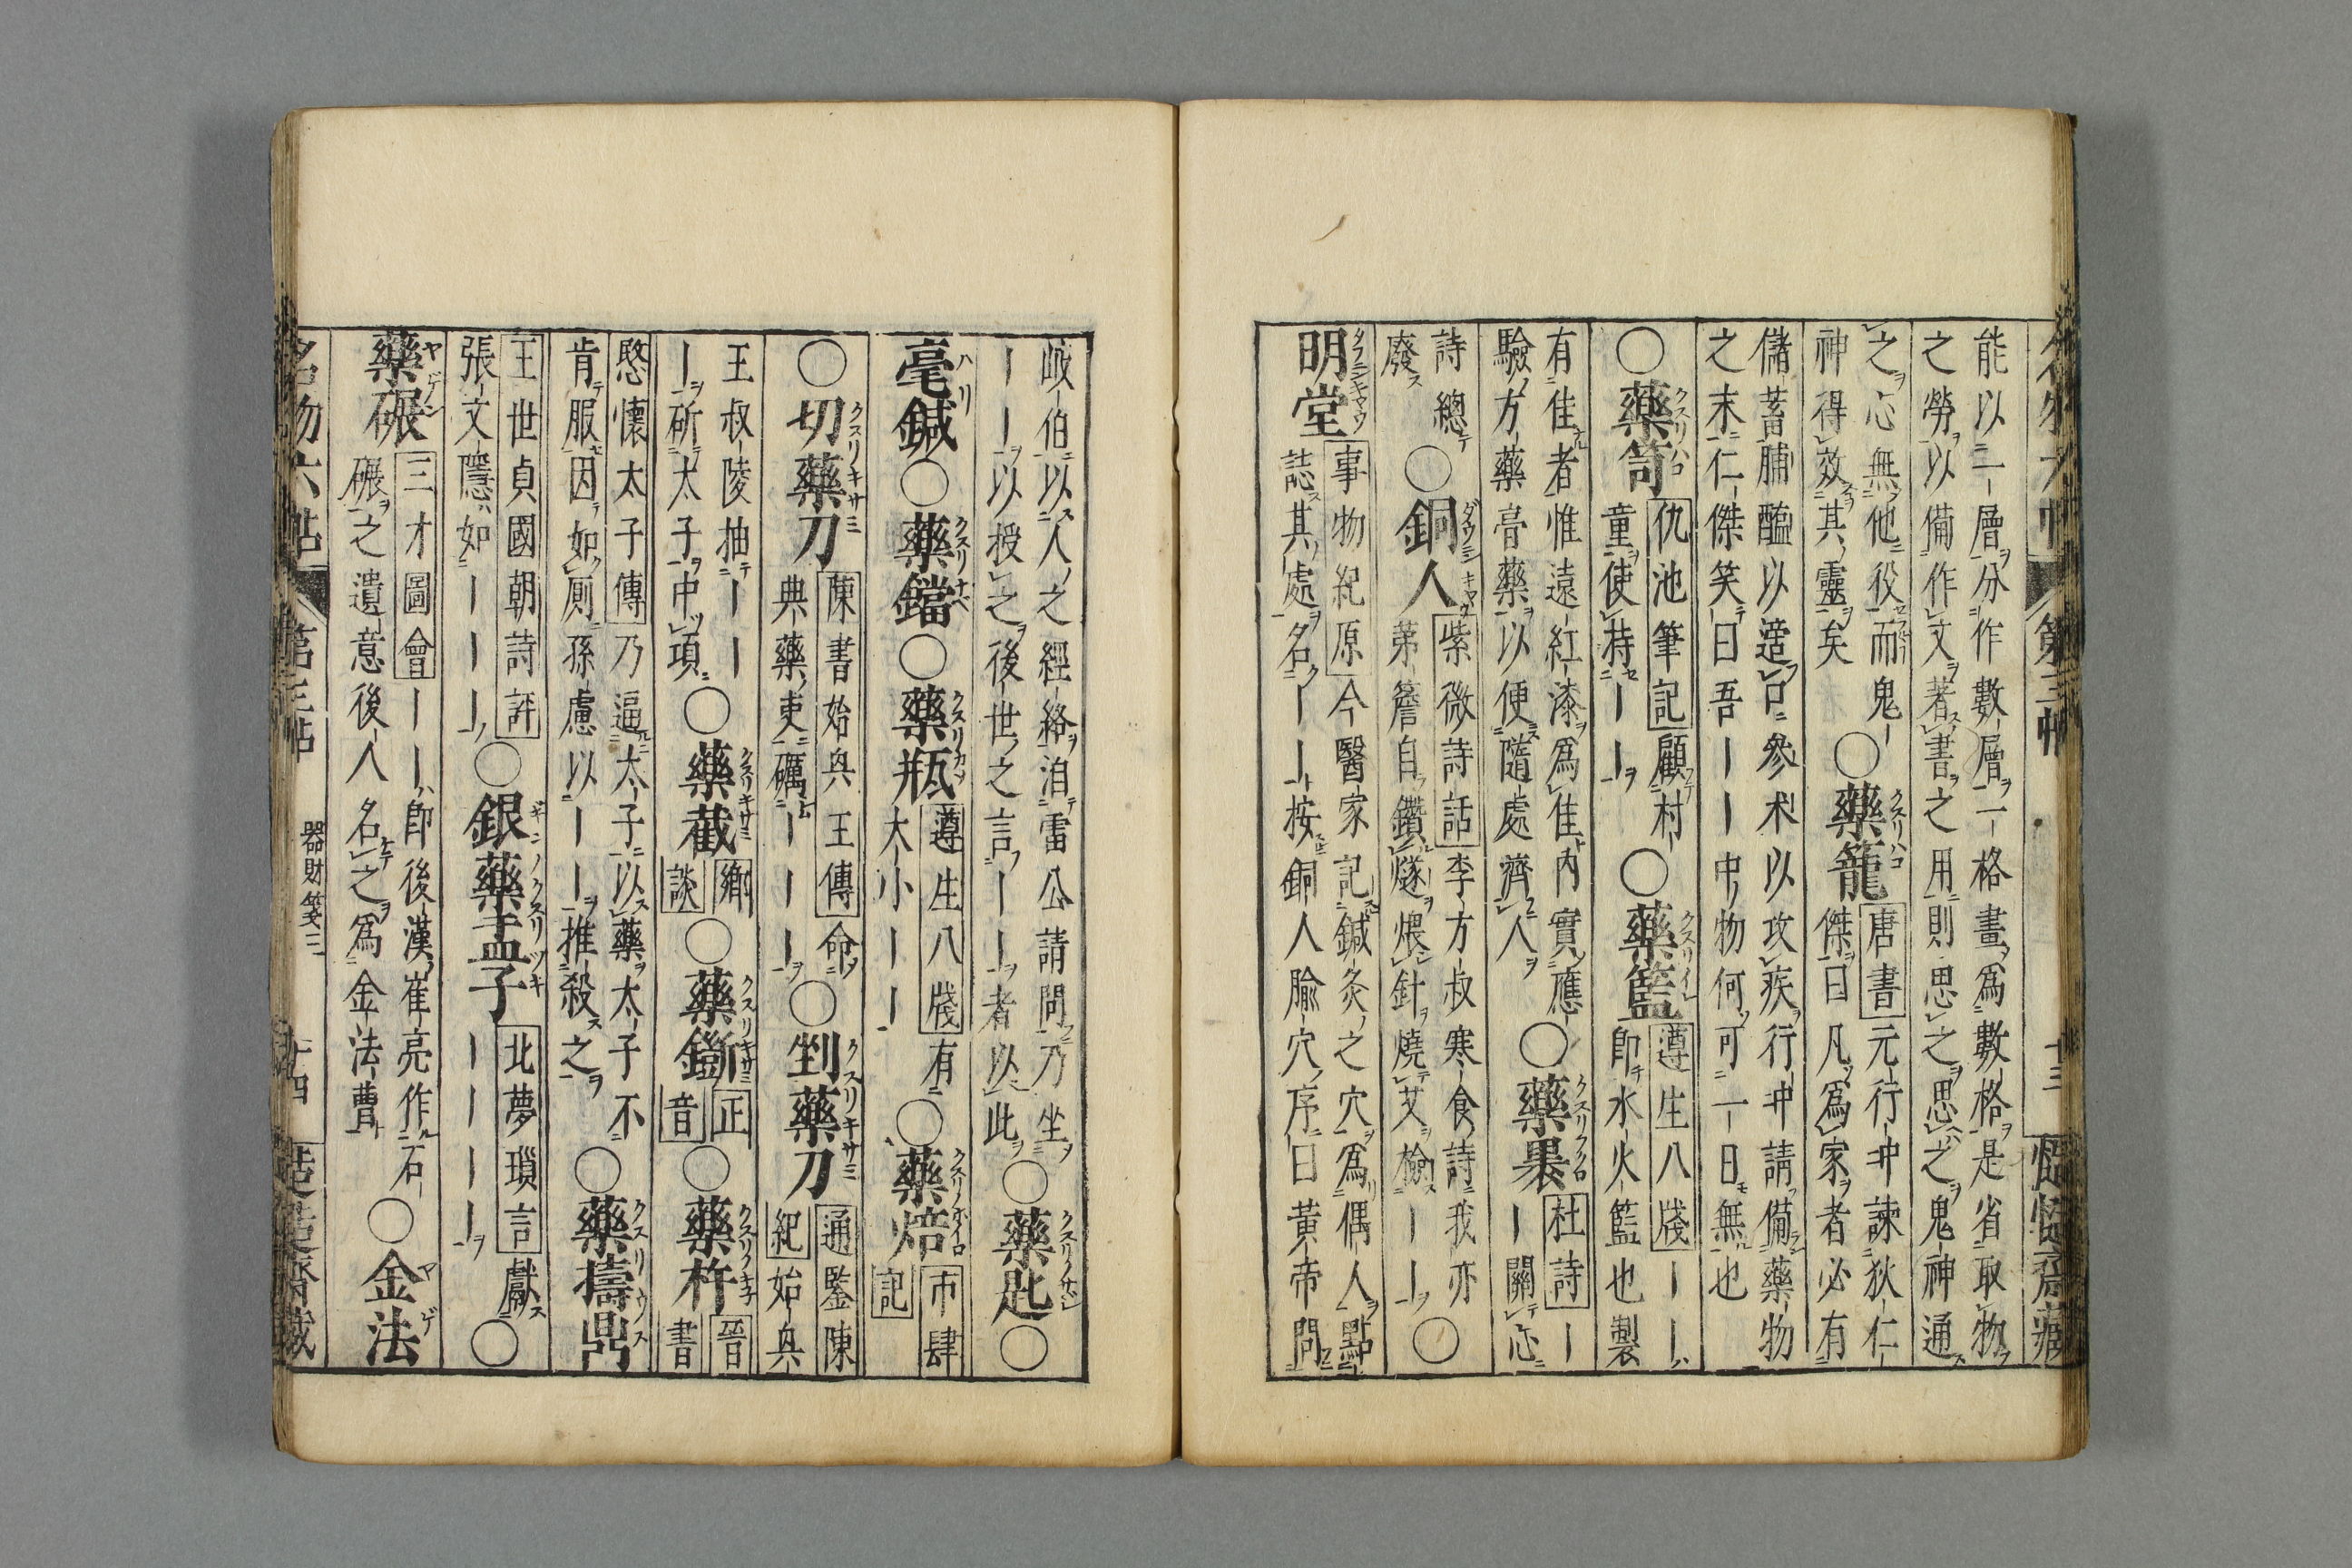 名物六帖 第三帖 十三 奎文齋藏
能以一層分作數層一格畫爲數格是省取物
之勞以備作文著書之用則思之思之鬼神通
之心無他役而鬼
神得效其靈矣
○藥籠 唐書元行冲諫狄仁
傑曰凡爲家者必有
儲蓄脯醢以適口參朮以攻疾行冲請備藥物
之末仁傑笑曰吾――中物何可一日無也
○藥笥 仇池筆記顧村
童使持――
○藥籃 遵生八牋――
即水火籃也製
有佳者惟遠紅漆爲佳內實應
驗方藥膏藥以便隨處濟人
○藥裹 杜詩―
―關心
詩總
廢
○銅人 紫微詩話李方叔寒食詩我亦
茅簷自鑽燧煨針燒艾檢――
○
明堂 事物紀原今醫家記鍼灸之穴爲偶人點
誌其處名――按銅人腧穴序曰黃帝問
岐伯以人之經絡洎雷公請問乃坐
――以授之後世之言――者以此
○藥匙○
毫鍼○藥鐺○藥瓶 遵生八牋有
大小――
○藥焙 市肆
記
○切藥刀 陳書始興王傳命
典藥吏礪―――
○剉藥刀 通鑑陳
紀始興
王叔陵抽――
―斫太子中項
○藥截 鄉
談
○藥鐁 正
音
○藥杵 晉
書
愍懷太子傳乃逼太子以藥太子不
肯服因如厠孫慮以――推殺之
○藥擣
王世貞國朝詩評
張文隱如――――
○銀藥盂子 北夢瑣言獻
――――
○
藥碾 三才圖會――即後漢崔亮作石
碾之遺意後人名之爲金法曹
○金法
名物六帖 第三帖 器財箋三 十四